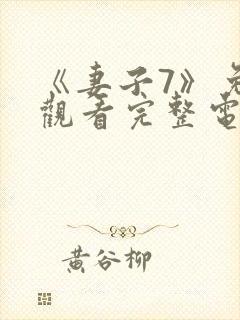 《妻子7》免
觀看完整電
黃谷柳